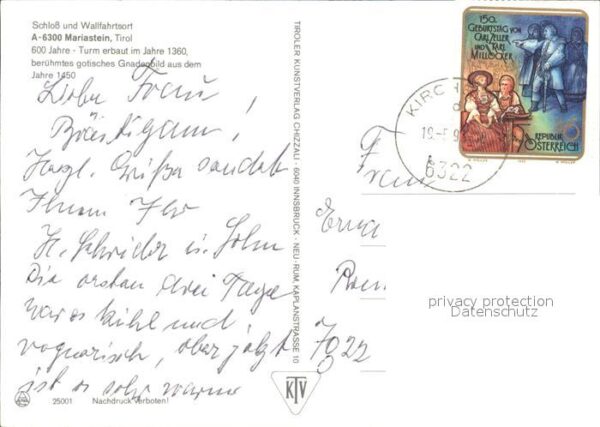 Schloß und Wallfahrtsort
A-6300 Mariastein, Tirol
600 Jahre - Turm erbaut im Jahre 1360,
berühmtes gotisches Gnadenbild aus dem
Jahre 1450
Liebe Frau
Bräutigam!
Herzl. Grüße sendet
Ihnen Ihr
H. Schrider u. Sohn
Die ersten drei Tage
war es kühl und
regnerisch, aber jetzt
ist es sehr warm
25001 Nachdruck verboten!
TIROLER KUNSTVERLAG CHIZZALI - 6040 INNSBRUCK - NEU-RUM, KAPLANSTRASSE 10
KTV
150.
GEBURTSTAG VON
CARL ZELLER
UND KARL
MILLÖCKER
REPUBLIK
ÖSTERREICH
6
KIRCH
6322
Frau
Erna
7022
privacy protection
Datenschutz